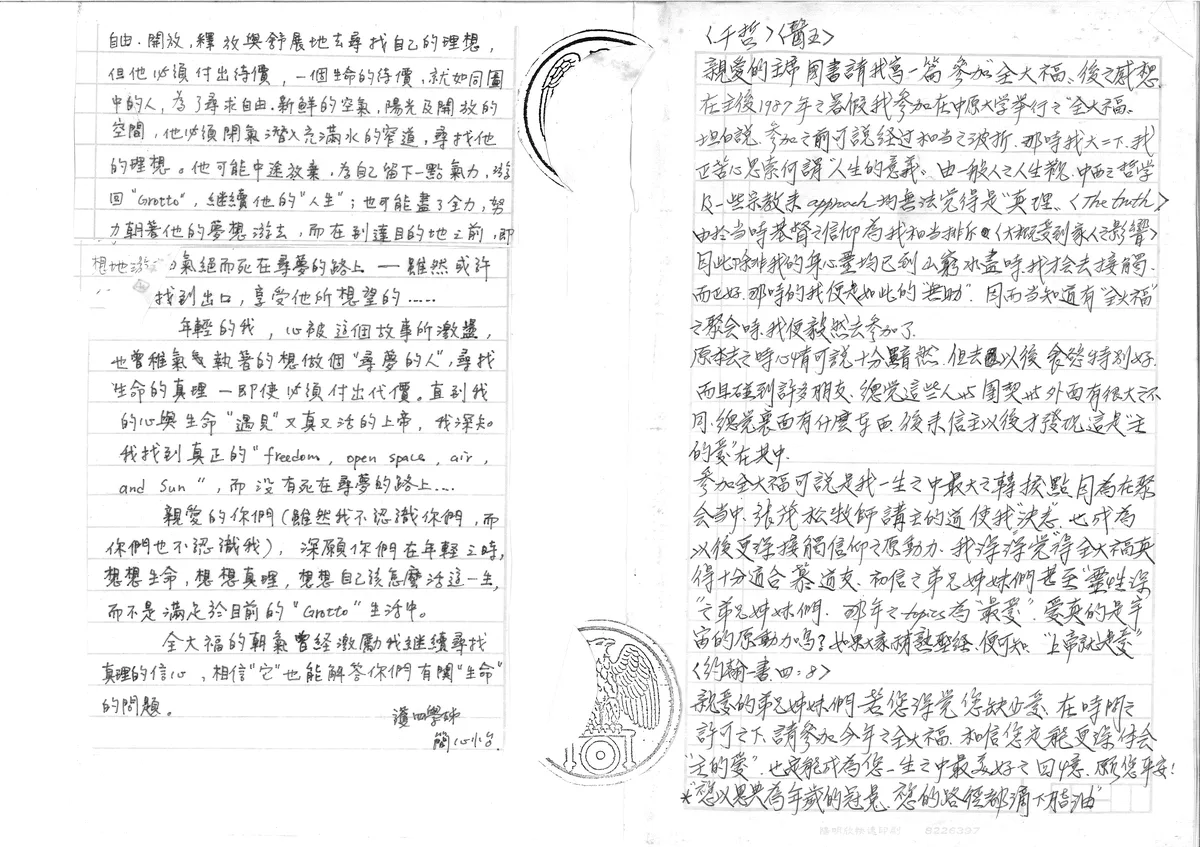 自由、開放,釋放與舒展地去尋找自己的理想,
但他必須付出待價,一個生命的待價,就如同圖
中的人,為了尋求自由、新鮮的空氣,陽光及開放的
空間,他必須閉氣潛入充滿水的窄道,尋找他
的理想。他可能中途放棄,為自己留下一點氣力,游
回"Grotto",繼續他的"人生";也可能盡了全力,努
力朝著他的夢想游去,而在到達目的地之前,即
氣絕而死在尋夢的路上 — 雖然或許
找到出口,享受他所想望的……
年輕的我,心被這個故事所激盪,
也曾稚氣執著的想做個"尋夢的人",尋找
生命的真理 — 即使必須付出代價。直到我
的心與生命"遇見"又真又活的上帝,我深知
我找到真正的"freedom, open space, air,
and Sun",而沒有死在尋夢的路上….
親愛的你們(雖然我不認識你們,而
你們也不認識我),深願你們在年輕之時,
想想生命,想想真理,想想自己該怎麼活這一生,
而不是滿足於目前的"Grotto"生活中。
全大福的朝氣曾經激勵我繼續尋找
真理的信心,相信"它"也能解答你們有關"生命"
的問題。
護四學姊
簡心怡.
〈千哲〉〈醫五〉
親愛的主席 囑書請我寫一篇 參加"全大福"後之感想.
在主後1987年之暑假我參加在中原大学举行之"全大福"
坦白說.參加之前可說经过相当之波折.那時我大二下.我
正苦心思索何謂"人生的意義".由一般人之人生觀.中西之哲学
及一些宗教來approach均無法覺得是"真理"〈The truth〉
由於当時基督之信仰為我相当排斥〈大概受到家人之影響〉
因此除非我的身心靈均已到山窮水盡時.我才会去接觸.
而正好.那時的我便是如此的"無助".因而当知道有"全大福"
之聚会時.我便毅然去參加了.
原本去之時心情可說十分黯然.但去以後食慾特別好.
而且碰到許多朋友.總覚這些人與團契與外面有很大之不
同.總覚裏面有什麼东西.後來信主以後才發現.這是"主
的愛"在其中.
參加全大福可說是我一生之中最大之轉捩點.因為在聚
会当中.張茂松牧師講主的道使我"決志".也成為
以後更深接觸信仰之原動力.我深深覚得全大福真
得十分適合慕道友.初信之弟兄姊妹們甚至"靈性深
"之弟兄姊妹們.那年之topics為"最愛".愛真的是宇
宙的原動力嗎?如果大家稍熟聖经.便可知."上帝就是愛"
〈約翰一書.四:8〉
親愛的弟兄姊妹們.若您深覚您缺少愛.在時間之
許可之下.請參加今年之全大福.相信您定能更深体会
"主的愛".也定能成為您一生之中最美好之回憶.願您平安!
*"您以恩典為年歲的冠冕.您的路徑都滴下脂油"